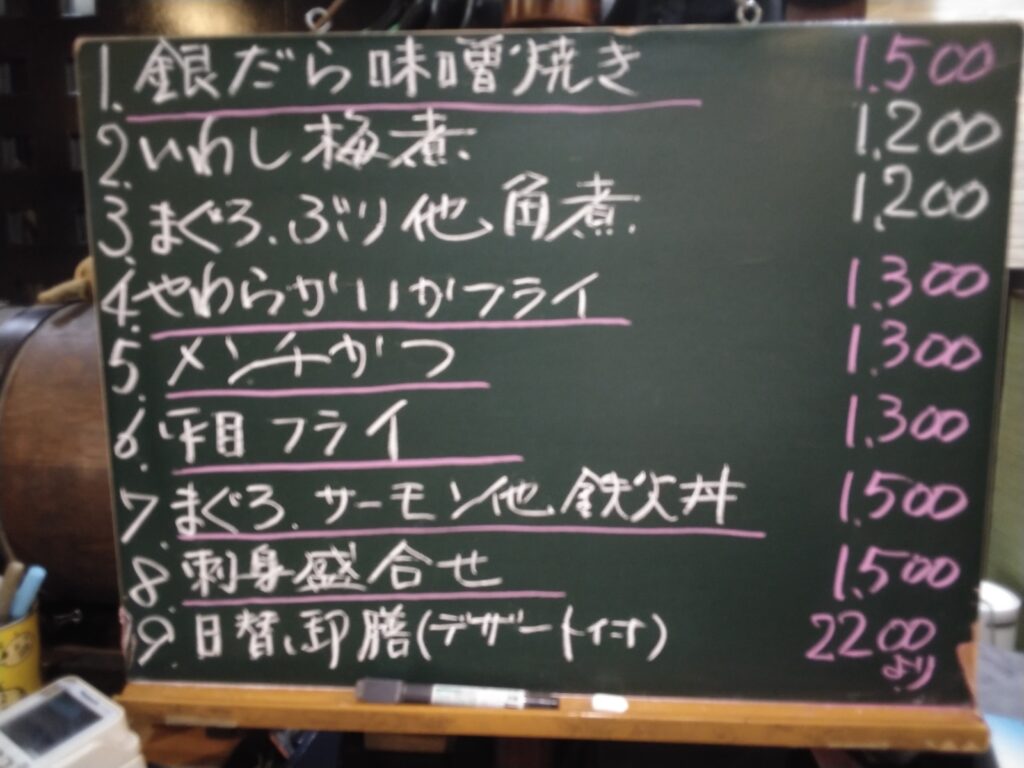 1. 銀だら味噌焼き 1.500
2. いわし梅煮. 1.200
3. まぐろ、ぶり他角煮. 1.200
4. やわらかいかフライ 1.300
5. メンチかつ 1.300
6. 平目フライ 1.300
7. まぐろ、サーモン他鉄火丼 1.500
8. 刺身盛合せ 1.500
9. 日替、卸膳(デザート付) 2200
より